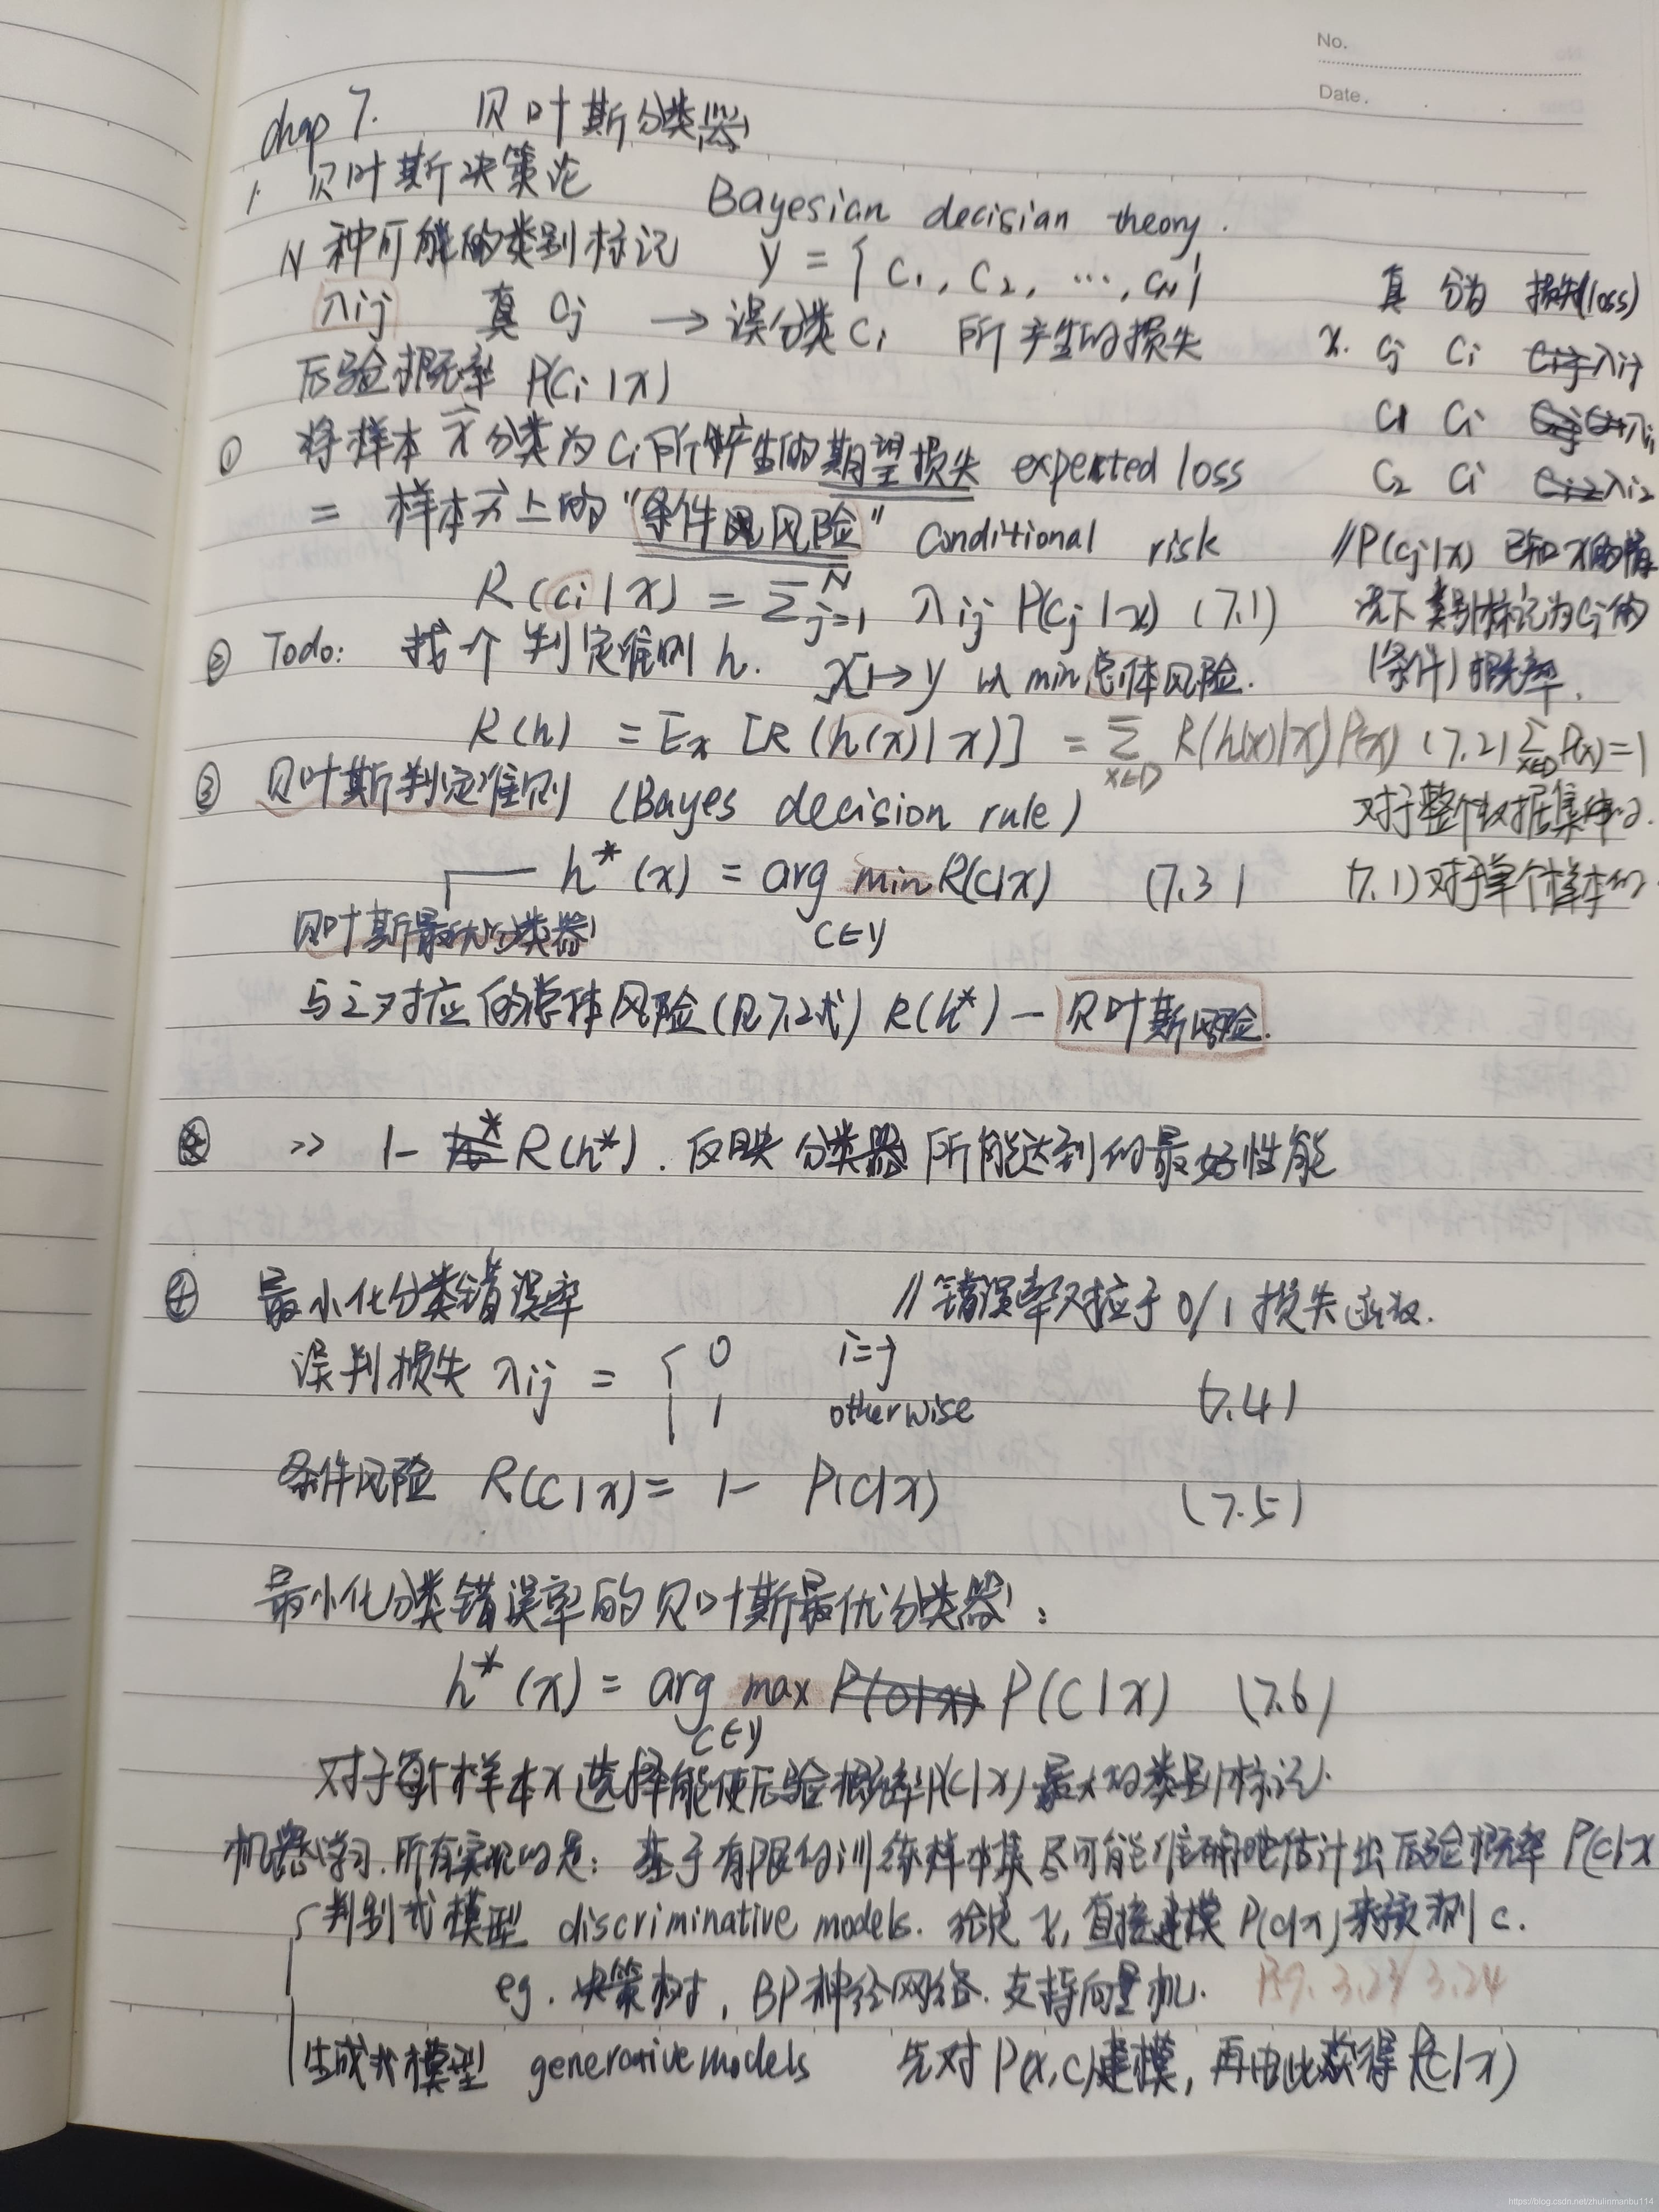 No.
Date.
chap 7. 贝叶斯分类器
1. 贝叶斯决策论 Bayesian decisian theory.
N种可能的类别标记 y = { C1, C2, ···, CN }
λij 真 Cj → 误分类 Ci 所产生的损失
后验概率 P(Ci | x)
真 分为 损失(loss)
x. Cj Ci λij
C1 Ci λi1
C2 Ci λi2
① 将样本 x 分类为 Ci 所产生的期望损失 expected loss
= 样本 x 上的 "条件风险" Conditional risk
R(Ci | x) = Σ_{j=1}^N λij P(Cj | x) (7.1)
// P(Cj | x) 已知x的情
况下 类别标记为Cj的
(条件) 概率.
② Todo: 找个判定准则 h. X ↦ y 以 min 总体风险.
R(h) = Ex [R (h(x) | x)] = Σ_{x∈D} R(h(x)|x) P(x) (7.2) Σ_{x∈D} P(x) = 1
③ 贝叶斯判定准则 (Bayes decision rule) 对于整个数据集
h*(x) = arg min R(c|x) (7.3) (7.1) 对于单个样本的
c∈y
贝叶斯最优分类器
与之对应的总体风险 (见7.2式) R(h*) — 贝叶斯风险.
>> 1 - R(h*). 反映分类器所能达到的最好性能
④ 最小化分类错误率 // 错误率对应于 0/1 损失函数.
误判损失 λij = { 0 i=j
1 otherwise (7.4)
条件风险 R(c | x) = 1 - P(c|x) (7.5)
最小化分类错误率的贝叶斯最优分类器:
h*(x) = arg max P(c | x) (7.6)
c∈y
对于每个样本x 选择能使后验概率P(c|x)最大的类别标记.
机器学习.所有实现的是: 基于有限的训练样本集尽可能准确地估计出后验概率 P(c|x
判别式模型 discriminative models. 给定 x, 直接建模 P(c|x)来预测 c.
eg. 决策树, BP神经网络. 支持向量机. 3.23 3.24
生成式模型 generative models 先对 P(x,c)建模, 再由此获得 P(c|x)
https://blog.csdn.net/zhulinmanbu114